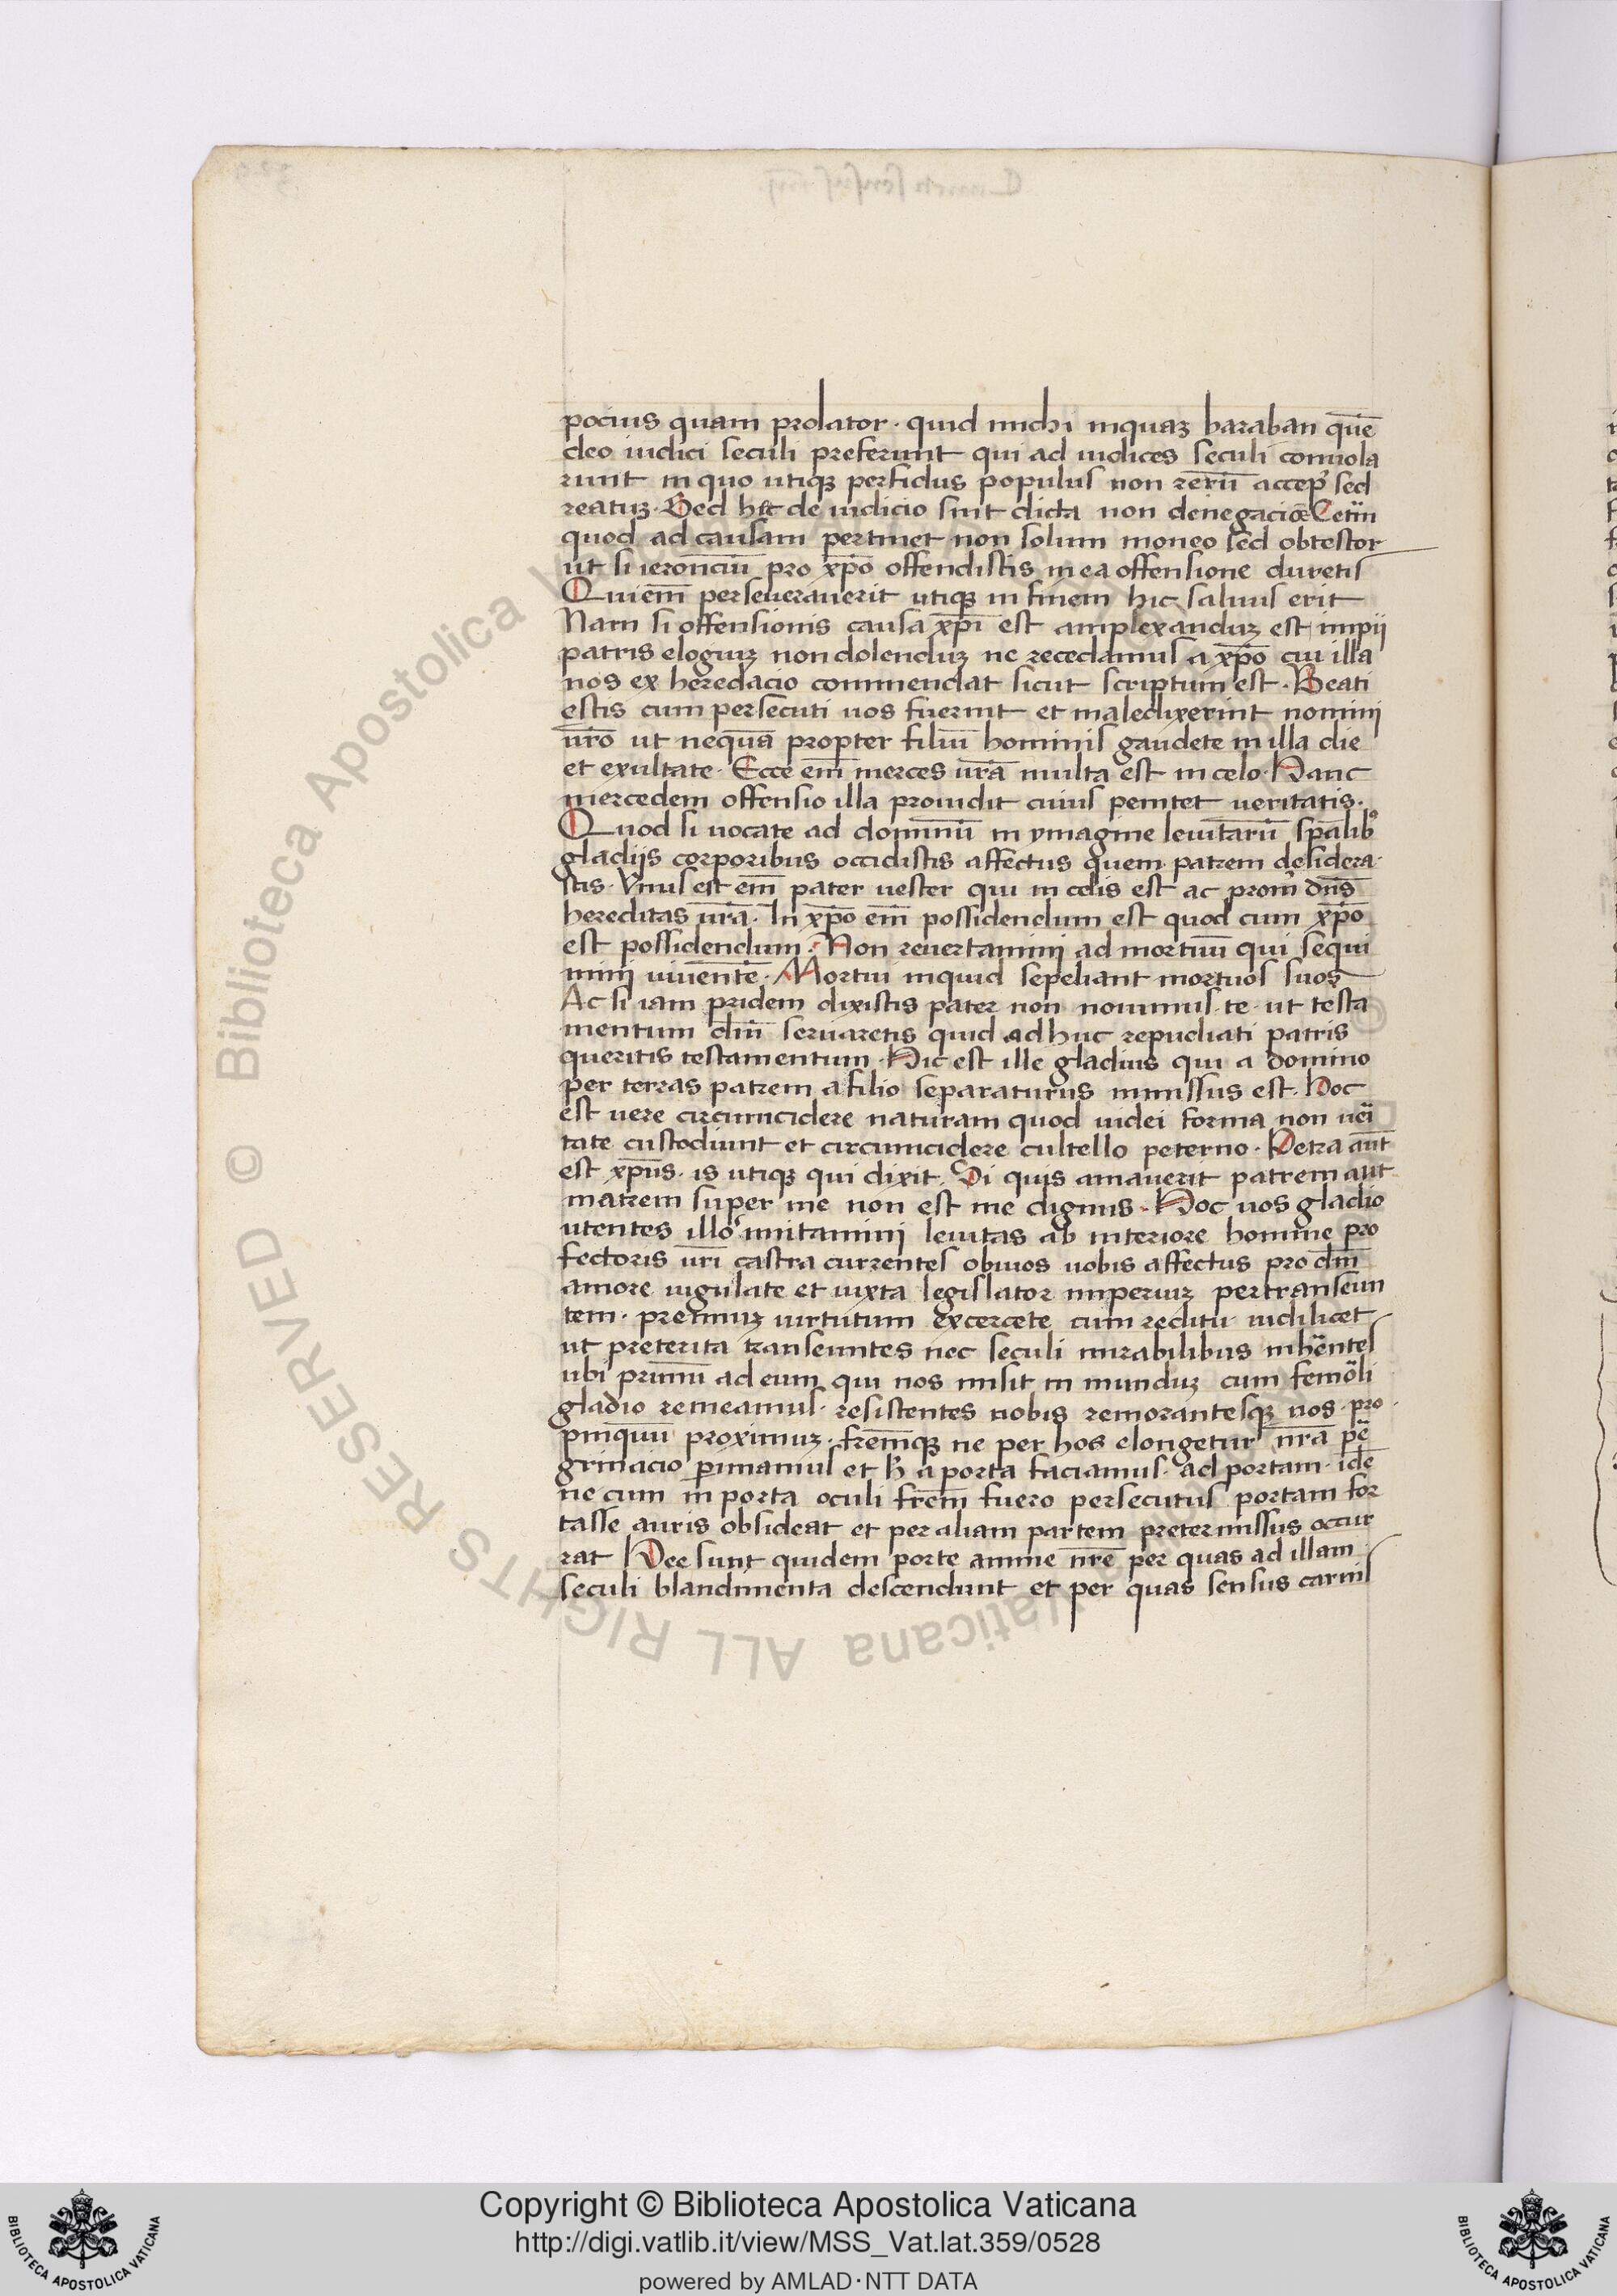 pocius quam prolator · quid michi inquaꝫ baraban quē
deo iudici seculi preferunt qui ad iudices seculi conuola
runt in quo utiqꝫ perfidus populus non rerū accep̄ sed
reatuꝫ · Sed hec de iudicio sint dicta non denegacio͞e Cetm̄
quod ad causam pertinet non solum moneo sed obtestor
ut si ieronciū pro xp̄o offendistis in ea offensione duretis
Qui em̄ perseuerauerit utiqꝫ in finem hic saluus erit
Nam si offensionis causa xp̄i est amplexanduꝫ est impii
patris elogiuꝫ non dolenduꝫ ne recedamus a xp̄o cui illa
nos ex heredacio commendat sicut scriptum est · Beati
estis cum persecuti uos fuerint et maledixerint nomini
ur̄o ut nequā propter filiū hominis gaudete in illa die
et exultate · Ecce em̄ merces ur̄a multa est in celo · Hanc
mercedem offensio illa prouidit cuius penitet ueritatis ·
Quod si uocate ad dominū in ymagine leuitarū sp̄alibꝰ
gladijs corporibus occidistis affectus quem patrem desidera
stis · Vnus est em̄ pater uester qui in celis est ac prom̄ dn̄s
hereditas ur̄a · In xp̄o em̄ possidendum est quod cum xp̄o
est possidendum · Non reuertamini ad mortuū qui sequi
mini uiuentē · Mortui inquid sepeliant mortuos suos
Ac si iam pridem dixistis pater non nouimus · te · ut testa
mentum dn̄i seruaretis quid adhuc repudiati patris
queritis testamentum · Hic est ille gladius qui a domino
per terras patrem a filio separaturus immissus est · Hoc
est uere circumcidere naturam quod iudei forma non uei
tate custodiunt et circumcidere cultello peterno · Petra aut̄
est xp̄us · is utiqꝫ qui dixit · Si quis amauerit patrem aut
matrem super me non est me dignus · Hoc uos gladio
utentes illoˢ imitamini leuitas ab interiore homine pro
fectoris ur̄i castra currentes obuios uobis affectus pro dn̄i
amore iugulate et iuxta legislator imperiuꝫ pertranseun
tem · premiuꝫ uirtutum excercete cum reditu uidilicet
ut preterita transeuntes nec seculi mirabilibus inhēntes
ubi primū ad eum qui nos misit in munduꝫ cum femōli
gladio remeamus · resistentes nobis remorantesqꝫ nos · pro
pinquū proximuꝫ · frem̄qꝫ ne per hos elongetur nr̄a pē
grinacio p̱imamus et h̄ a porta faciamus · ad portam · idē
ne cum in porta oculi frem̄ fuero persecutus portam for
tasse auris obsideat et per aliam partem pretermissus occur
rat Hee sunt quidem porte anime nr̄e per quas ad illam
seculi blandimenta descendunt et per quas sensus carnis
Copyright © Biblioteca Apostolica Vaticana
http://digi.vatlib.it/view/MSS_Vat.lat.359/0528
powered by AMLAD·NTT DATA
BIBLIOTECA APOSTOLICA VATICANA
BIBLIOTECA APOSTOLICA VATICANA
© Biblioteca Apostolica Vaticana ALL RIGHTS RESERVED